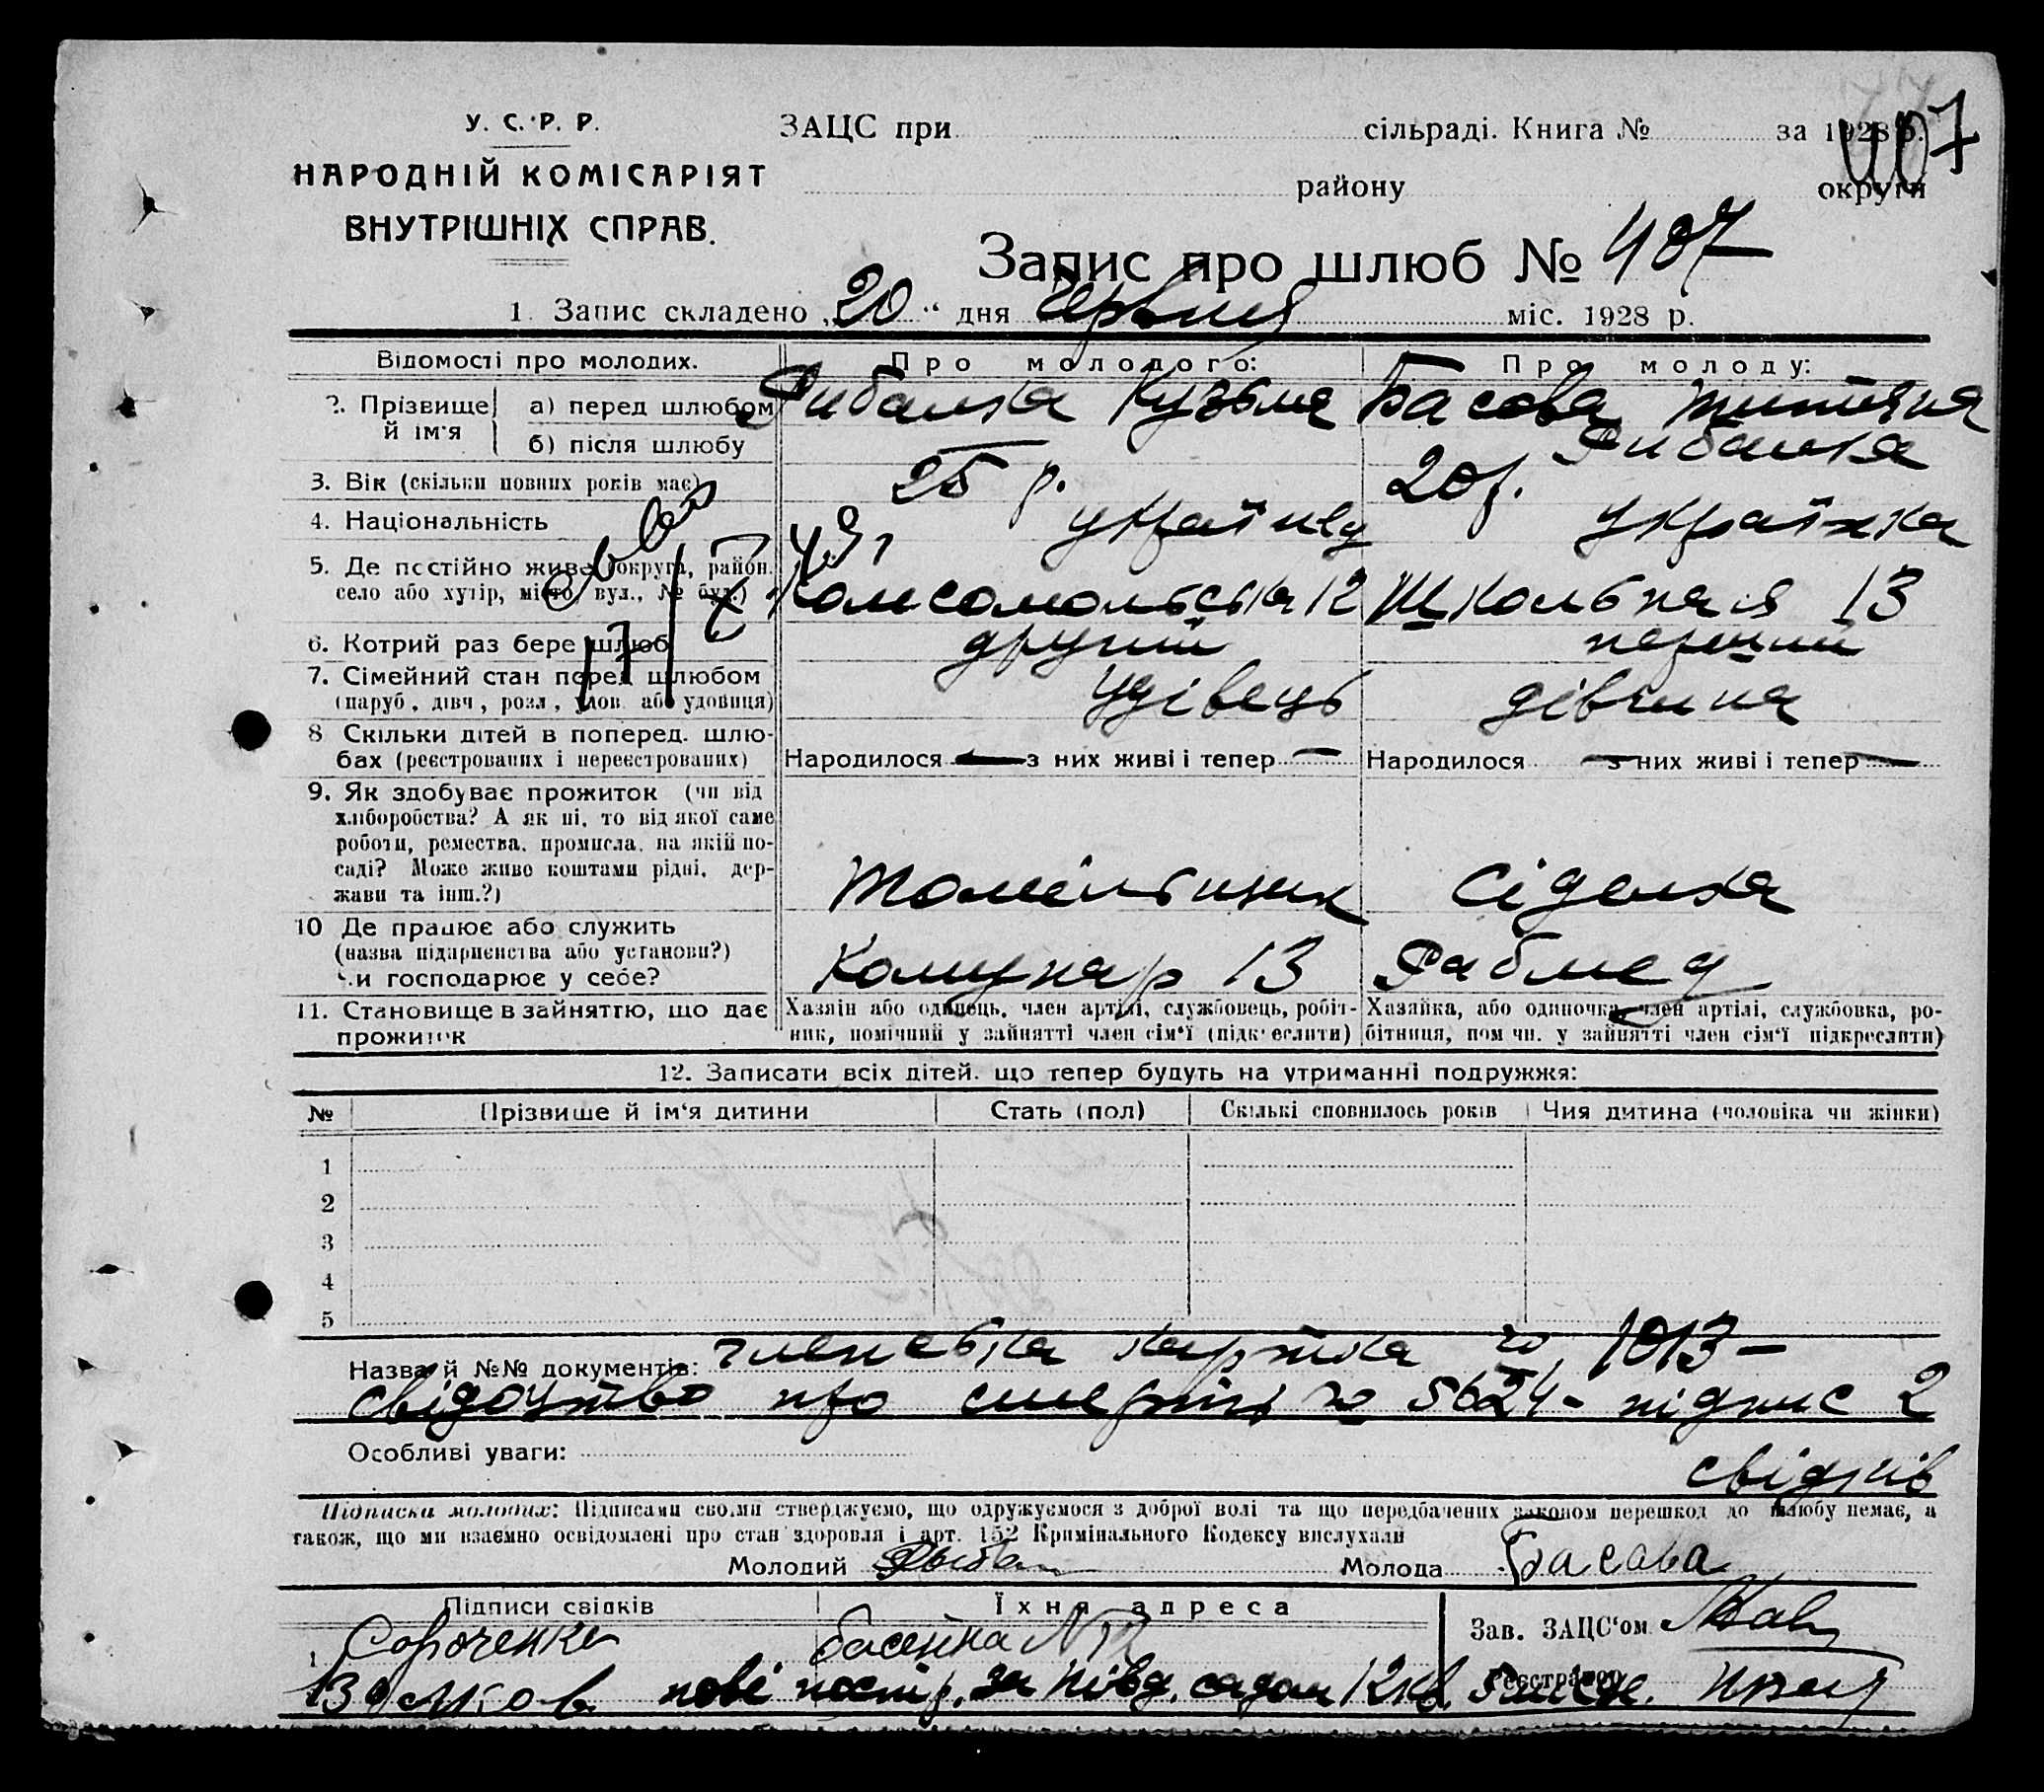 У. С. Р. Р.
НАРОДНІЙ КОМІСАРІЯТ
ВНУТРІШНІХ СПРАВ.
ЗАЦС при сільраді. Книга № за 1928 р.
407
району округи
Запис про шлюб № 407
1. Запис складено „20“ дня Червня міс. 1928 р.
Відомості про молодих. Про молодого: Про молоду:
2. Прізвище й ім'я
а) перед шлюбом Рибалка Кузьма Басова Титяна
б) після шлюбу Рибалка
3. Вік (скільки повних років має) 25 р. 20 р.
4. Національність українец українка
5. Де постійно живе (округа, район,
село або хутір, місто, вул., № буд.) Комсомольська 12 Школьная 13
6. Котрий раз бере шлюб другий перший
7. Сімейний стан перед шлюбом
(паруб., дівч., розл., удов. або удовиця) удівець дівчина
8 Скільки дітей в поперед. шлю-
бах (реєстрованих і нереєстрованих) Народилося — з них живі і тепер — Народилося — з них живі і тепер —
9. Як здобуває прожиток (чи від
хліборобства? А як ні, то від якої саме
роботи, ремества, промисла, на якій по-
саді? Може живе коштами рідні, дер-
жави та інш.?) Сіделка
10 Де працює або служить
(назва підприємства або установи?)
Чи господарює у себе? Комунар 13 Рабмед
11. Становище в зайняттю, що дає
прожиток
Хазяїн або одинець, член артілі, службовець, робіт-
ник, помічний у зайнятті член сім'ї (підкреслити)
Хазяйка, або одиночка, член артілі, службовка, ро-
бітниця, пом чн. у зайнятті член сім'ї підкреслити)
12. Записати всіх дітей, що тепер будуть на утриманні подружжя:
№ Прізвище й ім'я дитини Стать (пол) Скількі сповнилось років Чия дитина (чоловіка чи жінки)
1
2
3
4
5
Назва й №№ документів: членська картка № 1013 –
свідоцтво про смерть № 5624 - підпис 2
Особливі уваги: свідків
Підписки молодих: Підписами своїми стверджуємо, що одружуємося з доброї волі та що передбачених законом перешкод до шлюбу немає, а
також, що ми взаємно освідомлені про стан здоровля і арт. 152 Кримінального Кодексу вислухали
Молодий Молода Басова
Підписи свідків Їхня адреса
1 Сороченко басейна Зав. ЗАЦС'ом
нові
Реєстратор